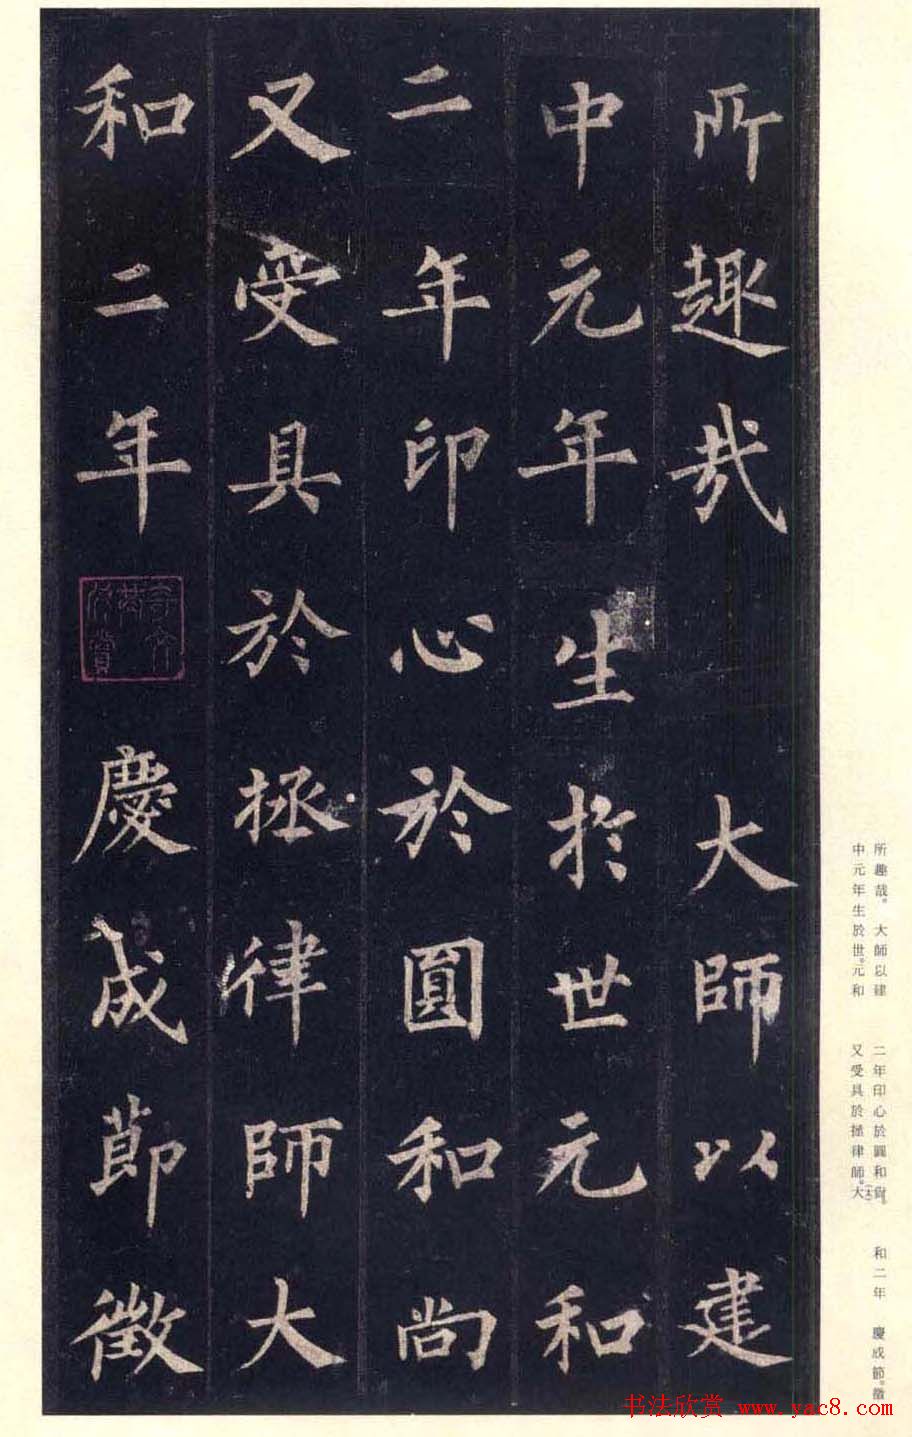 所趣哉 大師以建
中元年生於世元和
二年印心於圓和尚
又受具於拯律師大
和二年 慶成節徵
所趣哉。大師以建
中元年生於世。元和
二年印心於圓和尚。
又受具於拯律師。大(太)
和二年 慶成節。徵
书法欣赏 www.yac8.com